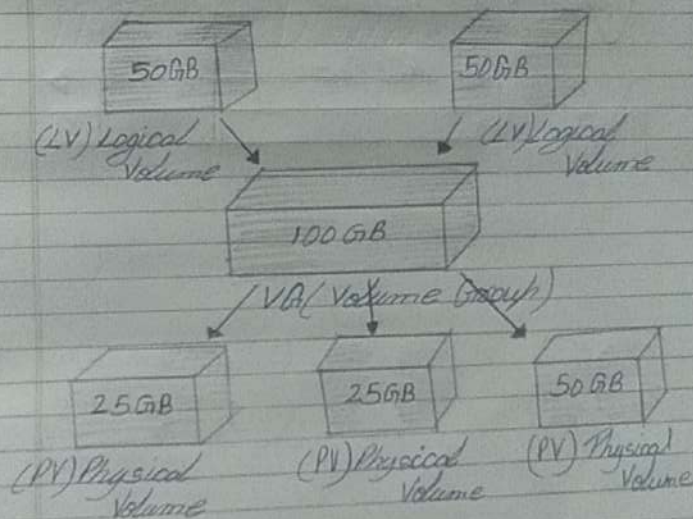 50GB
50GB
(LV) Logical
Volume
(LV) Logical
Volume
100GB
VG (Volume Group)
25GB
25GB
50GB
(PV) Physical
Volume
(PV) Physical
Volume
(PV) Physical
Volume